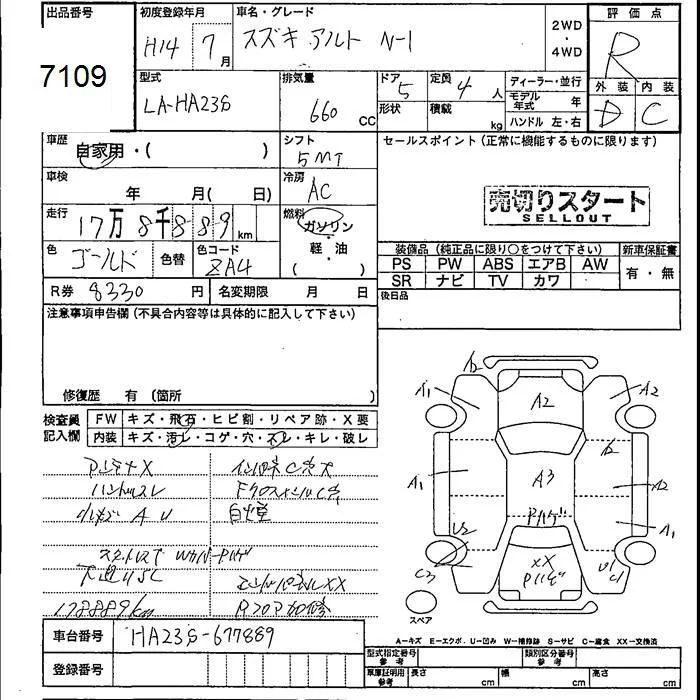 出品番号
7109
初度登録年月
H14 7月
車名・グレード
スズキ アルト N-1
2WD
・
4WD
評価点
R
外装 内装
D C
型式
LA-HA23S
排気量
660 CC
ドア 5
定員 4 人
形状
積載 kg
ディーラー・並行
モデル年式 年
ハンドル 左・右
車歴
自家用・( )
シフト
5MT
セールスポイント (正常に機能するものに限ります)
売切りスタート
SELLOUT
車検
年 月( 日)
冷房
AC
走行
17万8千889km
燃料
ガソリン
軽・油
( )
色 ゴールド
色替
色コード
ZA4
R券 8330円
名変期限 月 日
装備品 (純正品に限り○をつけて下さい)
PS PW ABS エアB AW
SR ナビ TV カワ
新車保証書
有・無
後日品
注意事項申告欄 (不具合内容等は具体的に記入して下さい)
修復歴 有 (箇所 )
検査員
記入欄
FW キズ・飛石・ヒビ割・リペア跡・X要
内装 キズ・汚レ・コゲ・穴・スレ・キレ・破レ
アンテナX
ハンドルスレ
小キズ A U
178889km
A2
A1
A2
A1
A3
A2
A1
U2
C3
XX
スペア
A―キズ E―エクボ U―凹み W―補修跡 S―サビ C―腐食 XX―交換済
車台番号 HA23S-677889
登録番号
型式指定番号
参考
類別区分番号
参考
車庫証明用
参考
長さ cm
幅 cm
高さ cm